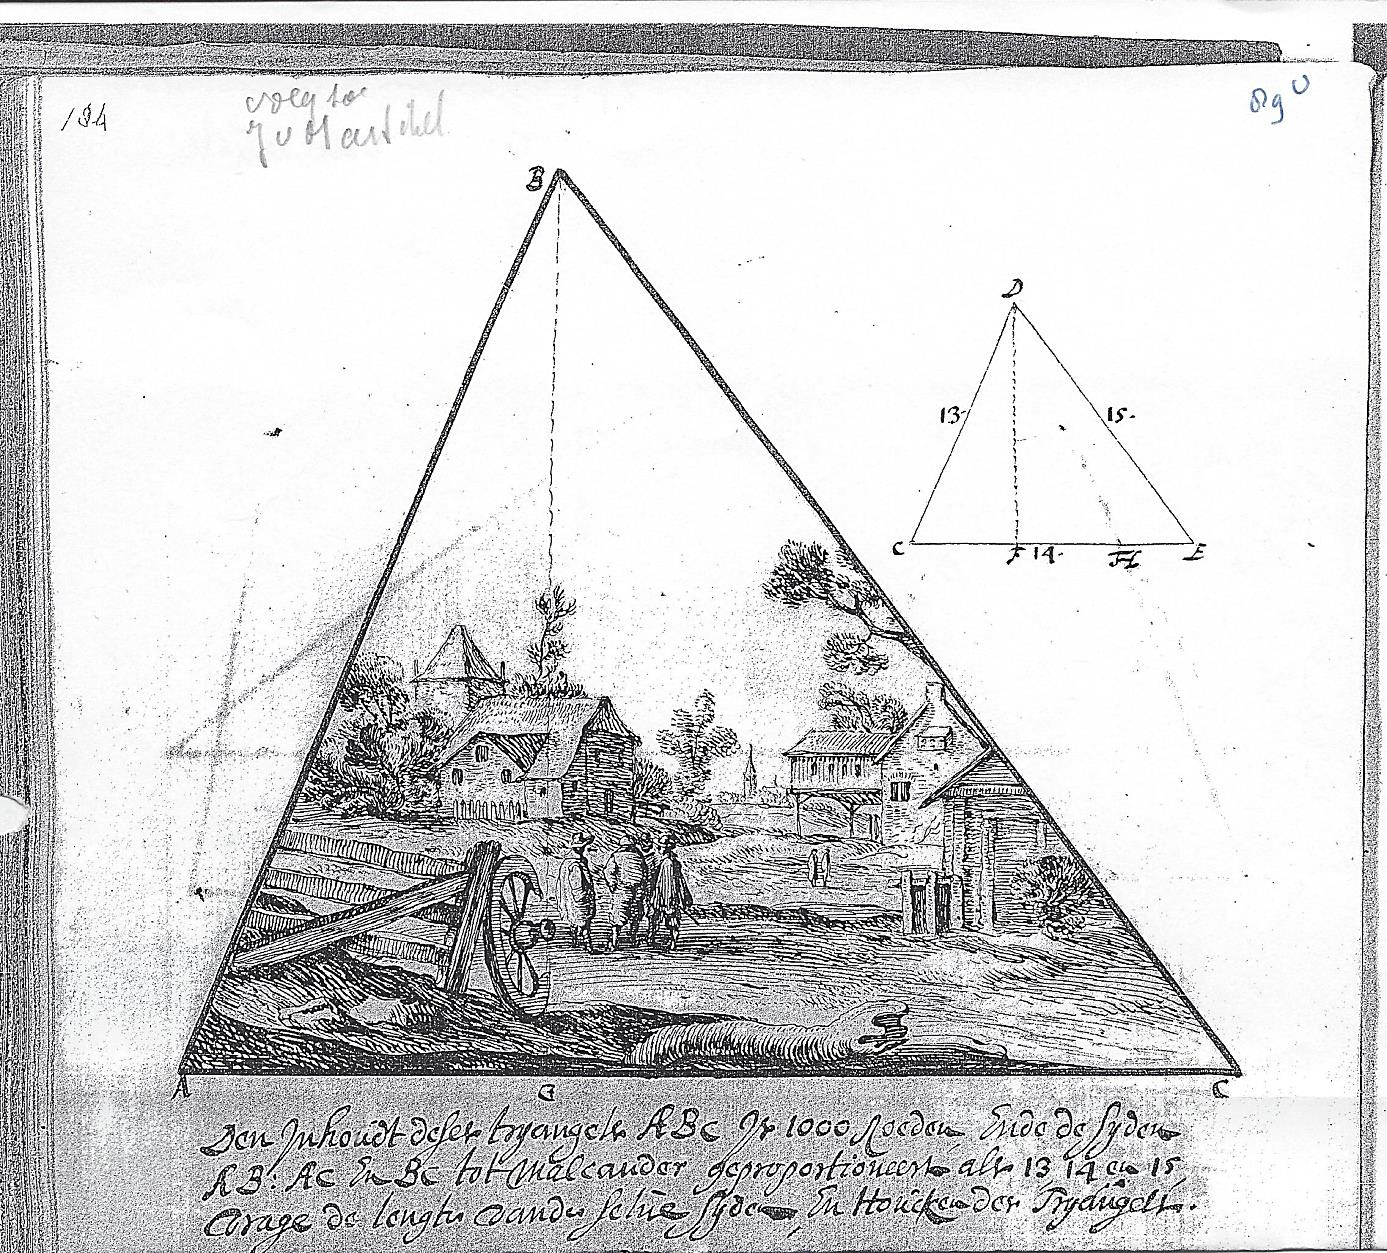 184
voeg toe
B
D
13.
15.
C
F
14.
H
E
A
G
C
Den Jnhoudt deser tryangel ABC Js 1000 Roeden, Ende de syden
AB: AC En BC tot malcander geproportioneert als 13 14 en 15
Vrage de lengte vande selve syden, En Houcken der Tryangel.